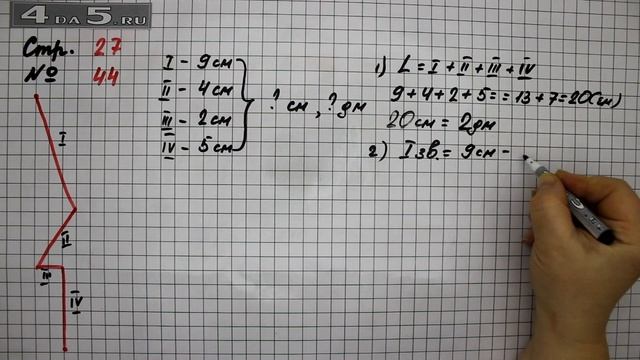 4 DA 5 .RU
Стр. 27
№ 44
I
II
III
IV
I - 9 см
II - 4 см
III - 2 см
IV - 5 см
? см, ? дм
1) L = I + II + III + IV
9 + 4 + 2 + 5 = = 13 + 7 = 20 (см)
20 см = 2 дм
2) I зв. = 9 см -